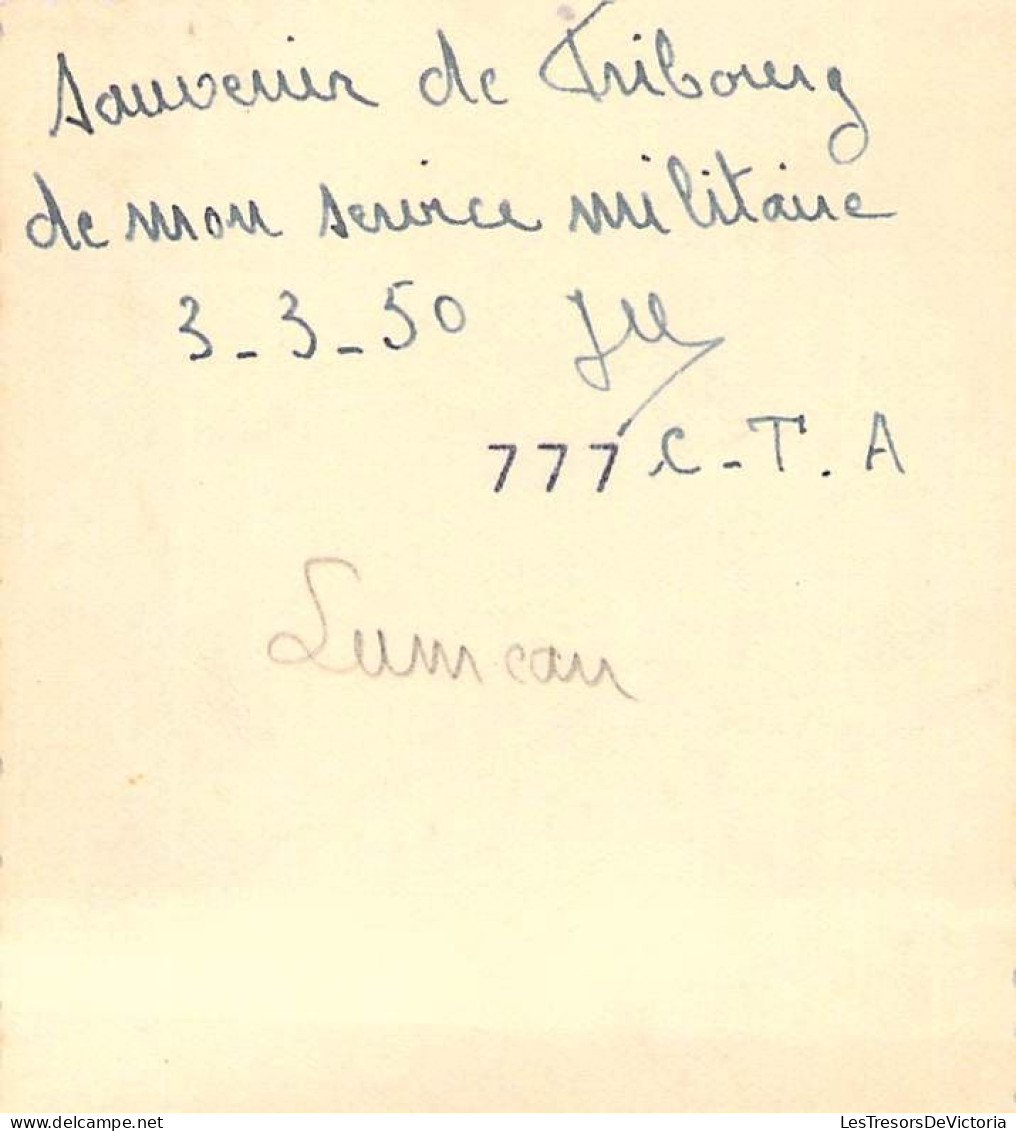 Souvenir de Fribourg
de mon service militaire
3-3-50
777 C-T.A
Lumeau
delcampe.net
LesTresorsDeVictoria